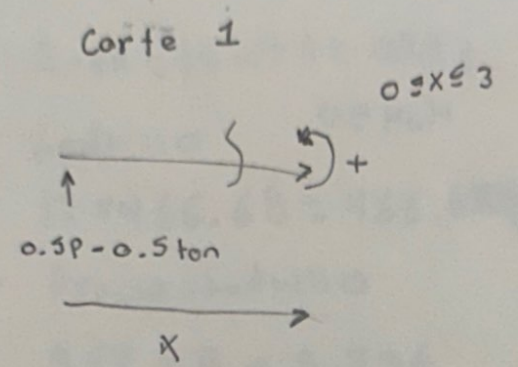 Corte 1
0 ≤ x ≤ 3
+
0.5P - 0.5 ton
x